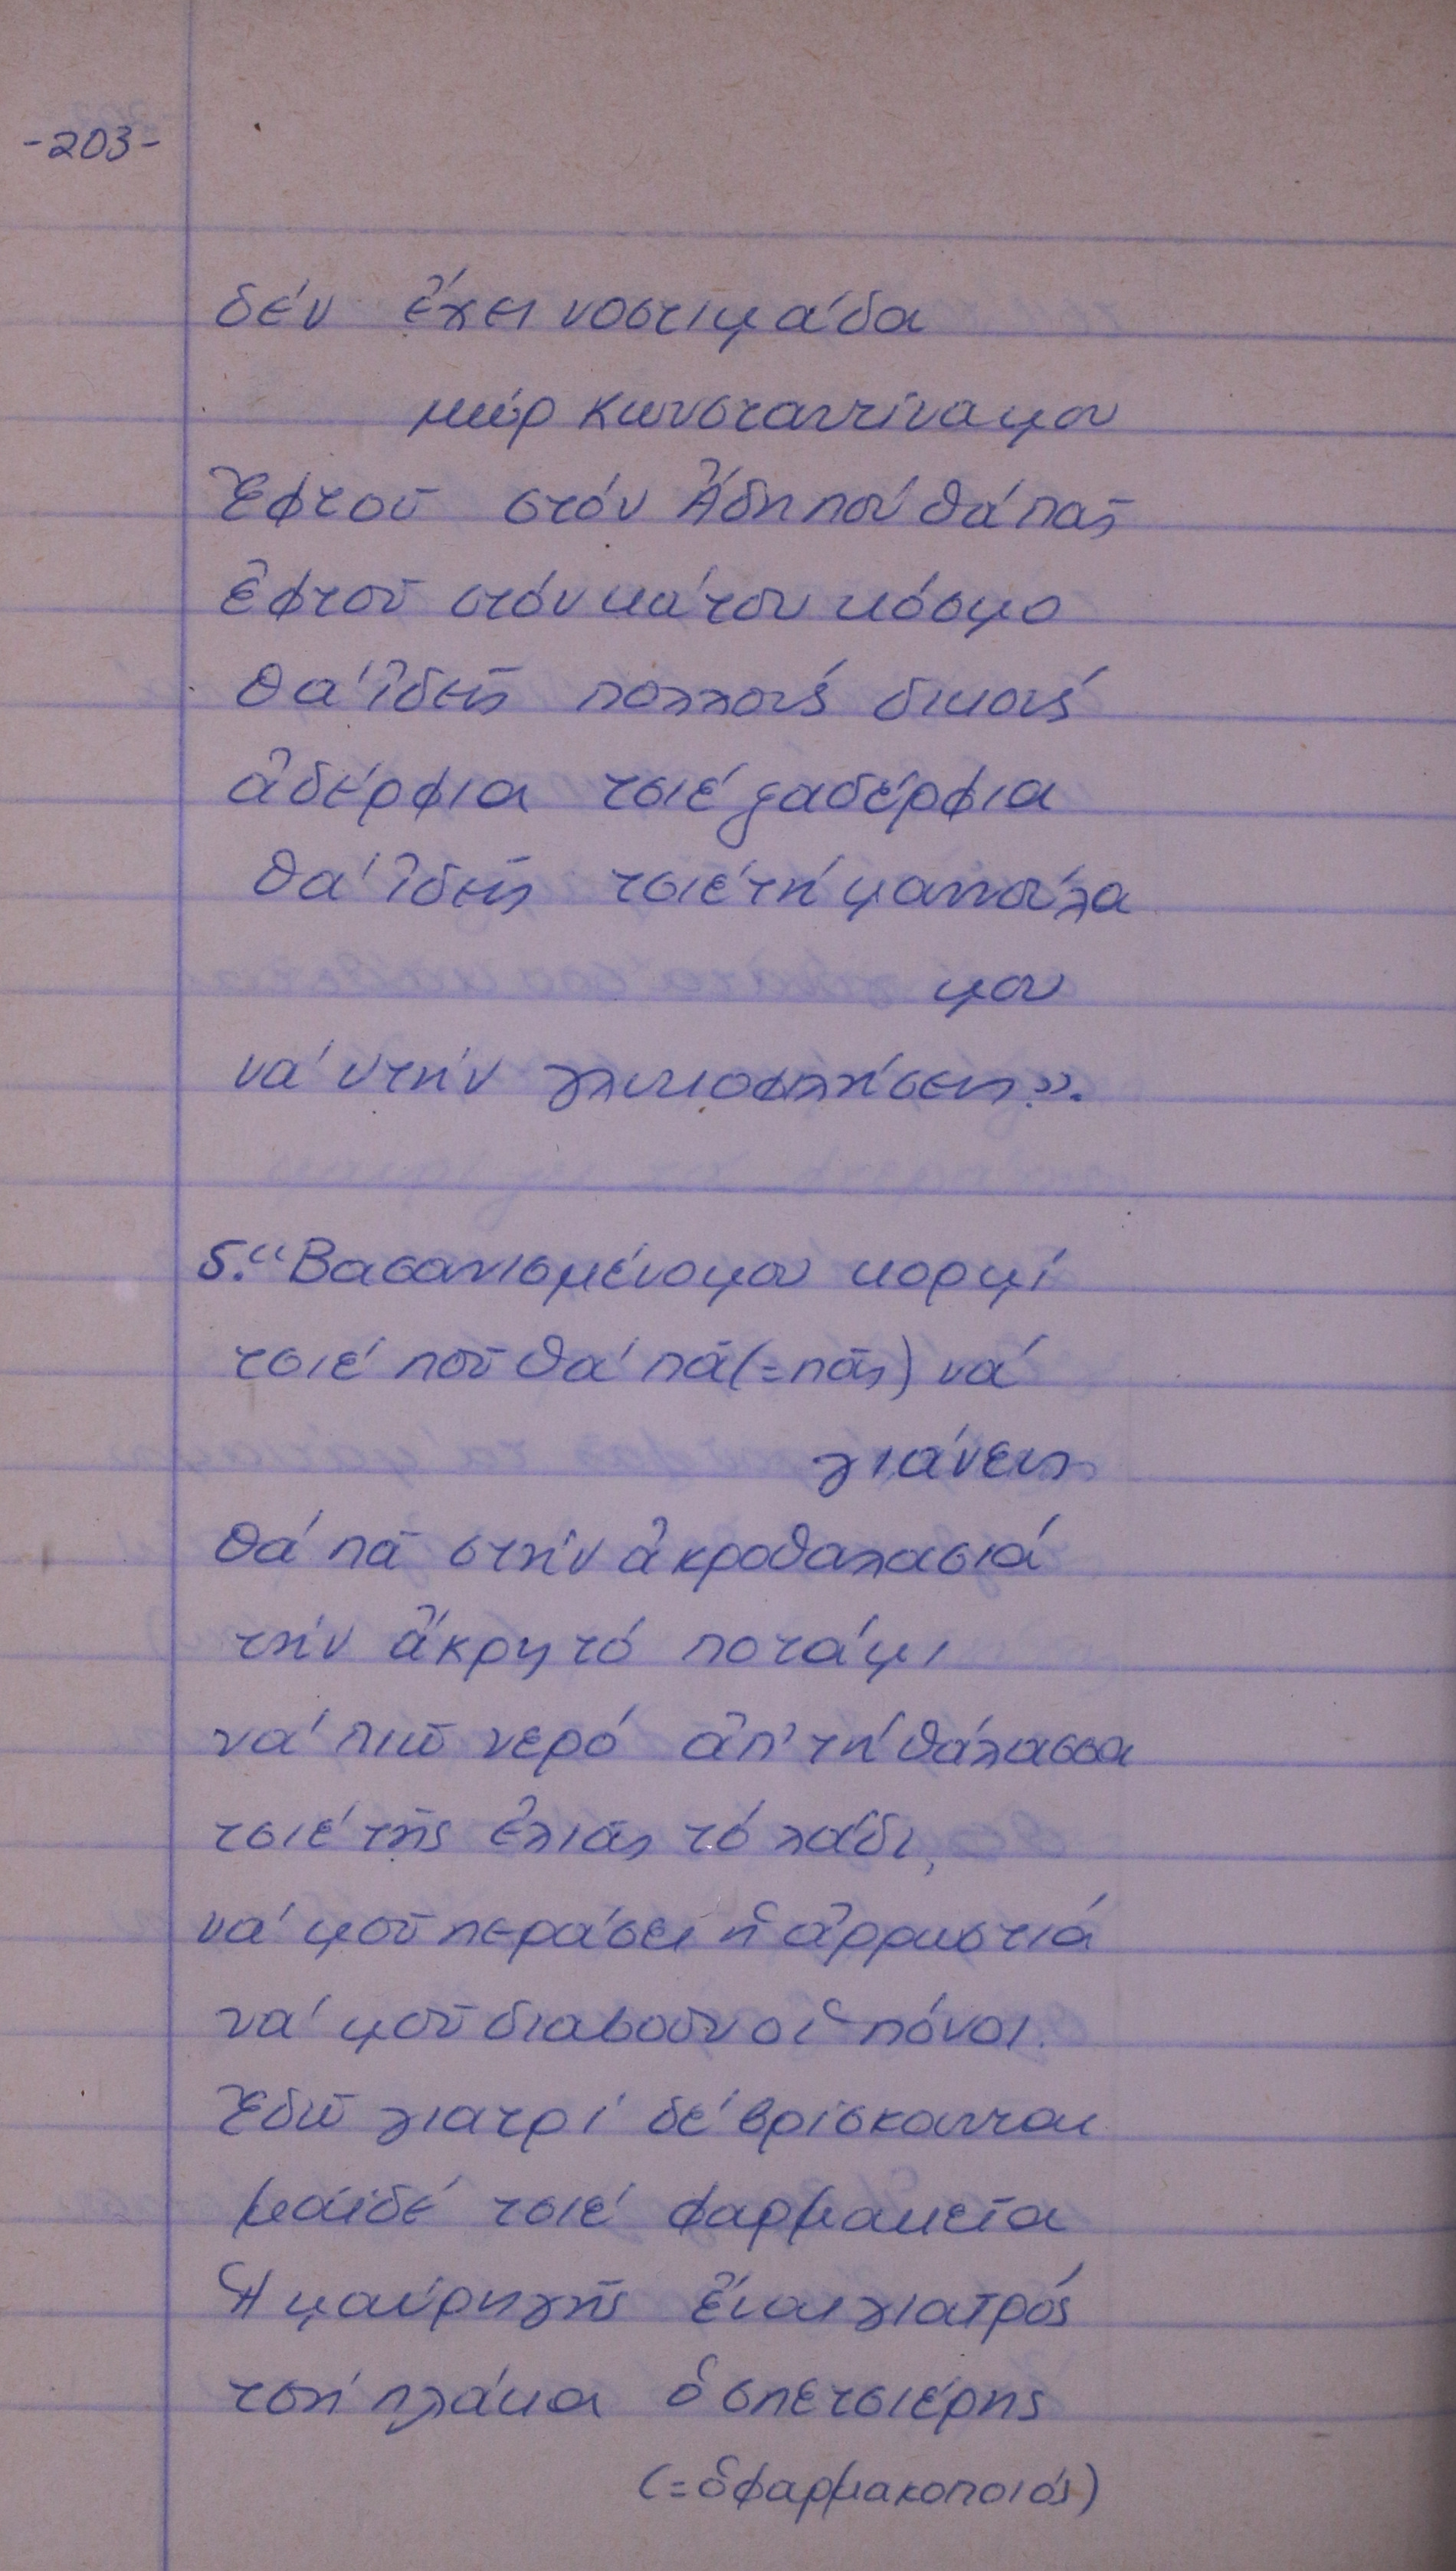 -203-
δέν ἔχει νοστιμάδα
μώρ Κωνσταντίνα μου
Ἐφτοῦ στόν Ἅδη πού θά πᾶς
ἐφτοῦ στόν κάτου κόσμο
θά ἰδεῖς πολλούς δικούς
ἀδέρφια τσιέ ξαδέρφια
θά ἰδεῖς τσιέ τή μαννούλα
μου
νά ντήν γλυκοφιλήσεις».
5. "Βασανισμένο μου κορμί
τσιέ ποῦ θά πᾶ (=πᾶς) νά
γιάνεις
θά πᾶ στήν ἀκροθαλασιά
τήν ἄκρη τό ποτάμι
νά πιῶ νερό ἀπ' τή θάλασσα
τσιέ τῆς ἐλιᾶς τό λάδι,
νά μοῦ περάσει ἡ ἀρρωστιά
νά μοῦ διαβοῦν οἱ πόνοι.
Ἐδῶ γιατρί δέ βρίσκονται
μαϊδέ τσιέ φαρμακεῖα
Ἡ μαύρη γῆς ἔναι γιατρός
τσή πλάκα ὁ σπετσιέρης
(=ὁ φαρμακοποιός)